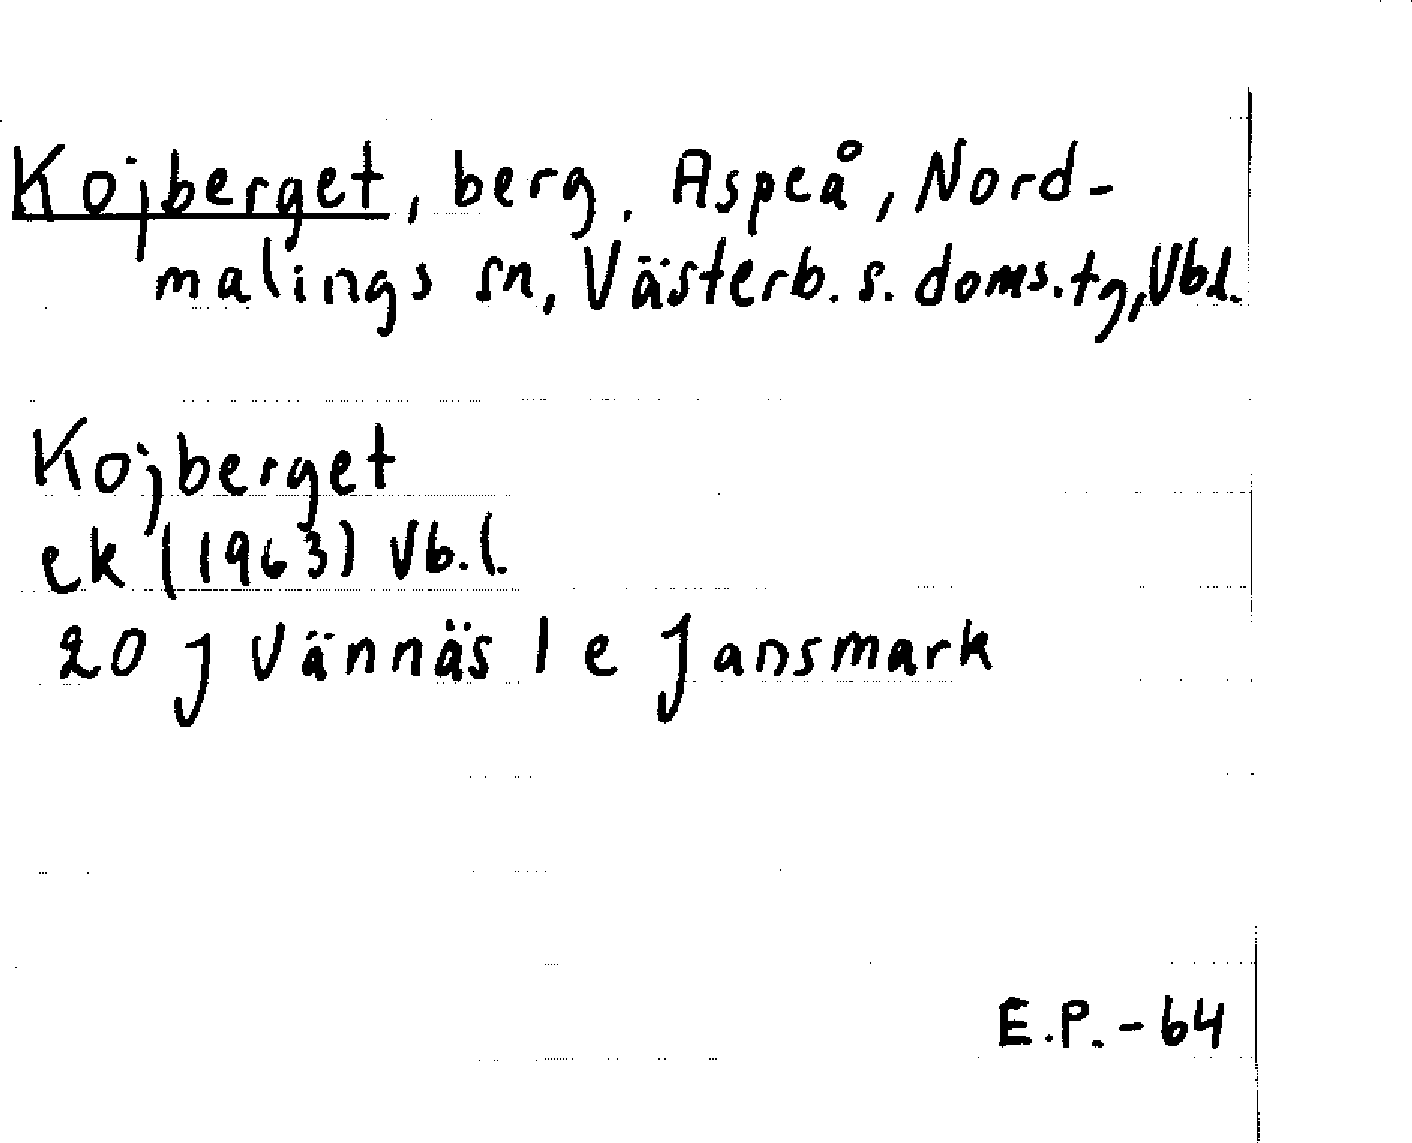 Kojberget, berg. Aspeå, Nord-
malings sn, Västerb. s. doms.tg, Vbl.
Kojberget
ek (1963) Vb.l.
20 J Vännäs 1 e Jansmark
E.P. - 64